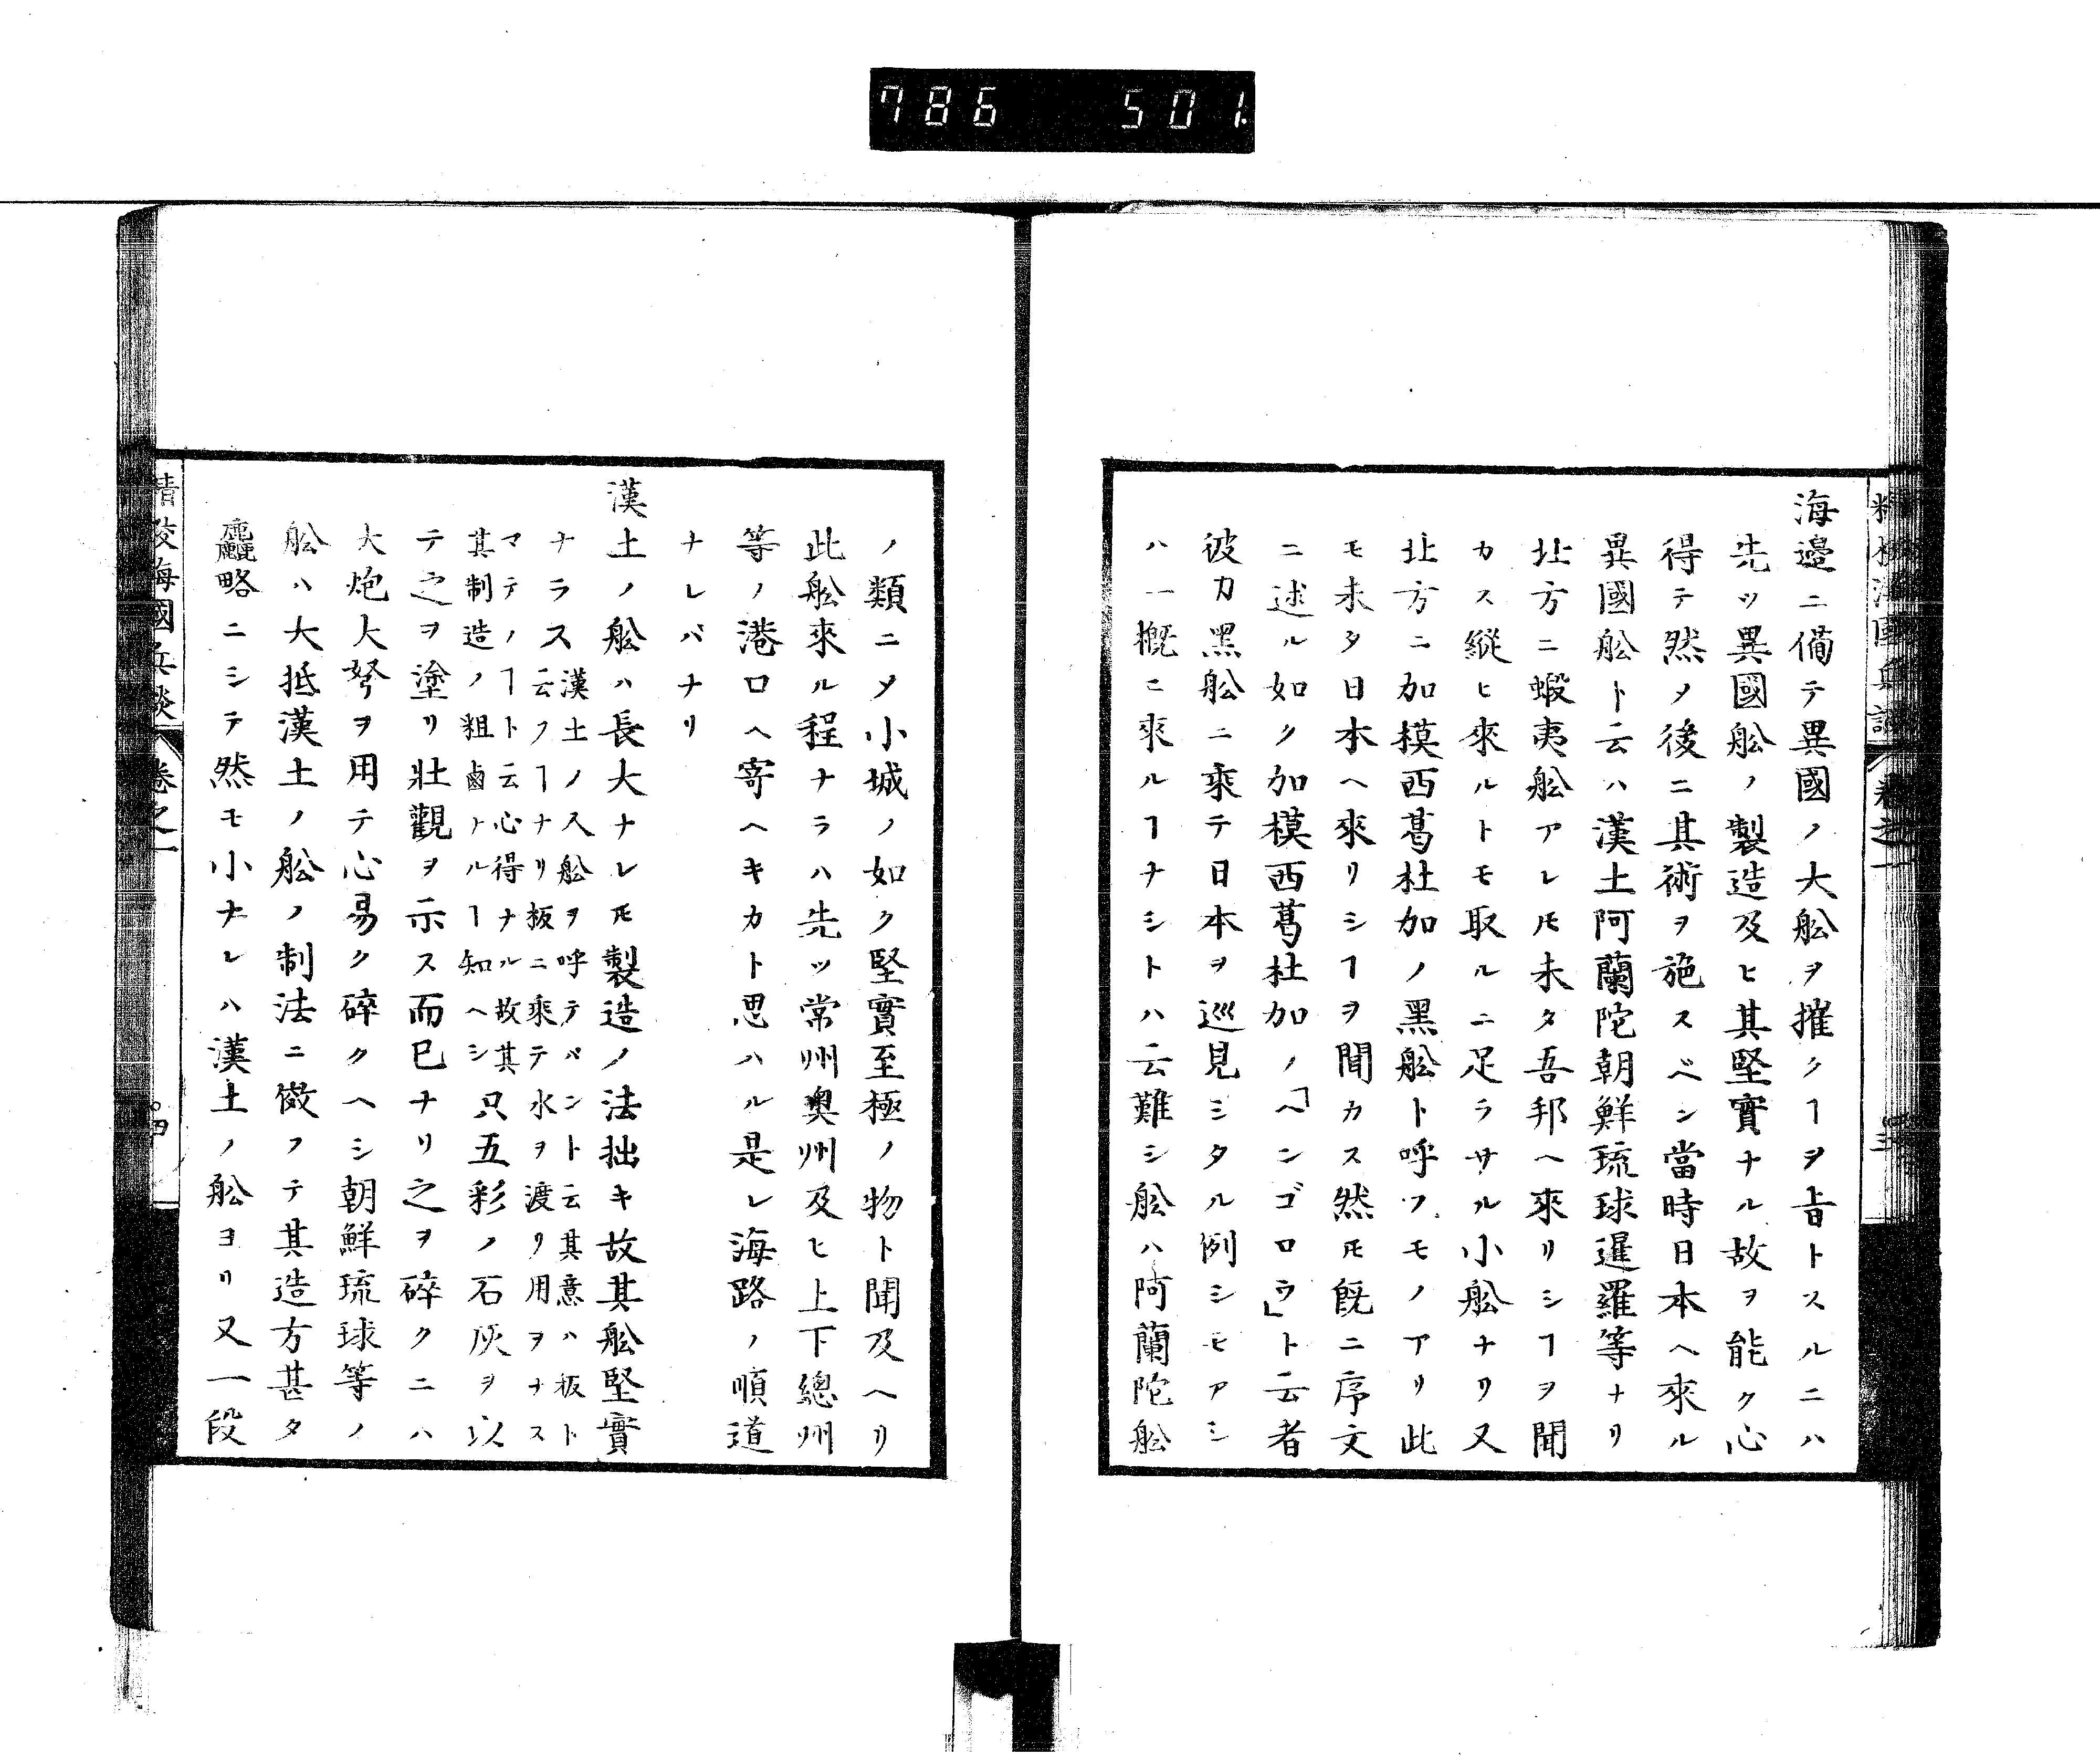 786 501
海邊ニ備テ異國ノ大舩ヲ摧クヿヲ旨トスルニハ
先ツ異國舩ノ製造及ヒ其堅實ナル故ヲ能ク心
得テ然〆後ニ其術ヲ施スベン當時日本ヘ來ル
異國舩ト云ハ漢土阿蘭陀朝鮮琉球暹羅等ナリ
北方ニ蝦夷舩アレ𪜈未タ吾邦ヘ來リシヿヲ聞
カス縦ヒ來ルトモ取ルニ足ラサル小舩ナリ又
北方ニ加模西葛杜加ノ黑舩ト呼フモノアリ此
モ未タ日本ヘ來リシヿヲ聞カス然𪜈既ニ序文
ニ述ル如ク加模西葛杜加ノ「ヘンゴロウ」ト云者
彼カ黑舩ニ乘テ日本ヲ巡見ミタル例シモアシ
ハ一概ニ來ルヿナシトハ云難シ舩ハ阿蘭陀舩
ノ類ニ〆小城ノ如ク堅實至極ノ物ト聞及ヘリ
此舩來ル程ナラハ先ッ常州奥州及ヒ上下總州
等ノ港口ヘ寄ヘキカト思ハル是レ海路ノ順道
ナレバナリ
漢土ノ舩ハ長大ナレ𪜈製造ノ法拙キ故其舩堅實
ナラス漢土ノ人舩ヲ呼テバントト云其意ハ板ト
云フヿナリ板ニ乘テ水ヲ渡リ用ヲナス
マテノヿト云心得ナル故其
其制造ノ粗鹵ナルヿ知ヘシ只五彩ノ石灰ヲ以
テ之ヲ塗リ壯觀ヲ示ス而已ナリ之ヲ碎クニハ
大炮大弩ヲ用テ心易ク碎クヘシ朝鮮琉球等ノ
舩ハ大抵漢土ノ舩ノ制法ニ倣フテ其造方甚タ
麤略ニシテ然モ小ナレハ漢土ノ舩ヨリ又一段
海國兵談 卷之一 四